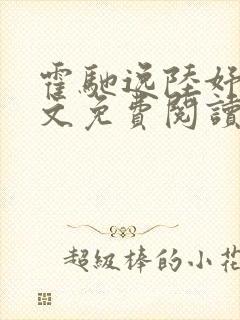 霍馳逸陸好
文免費閱讀
超級棒的小花